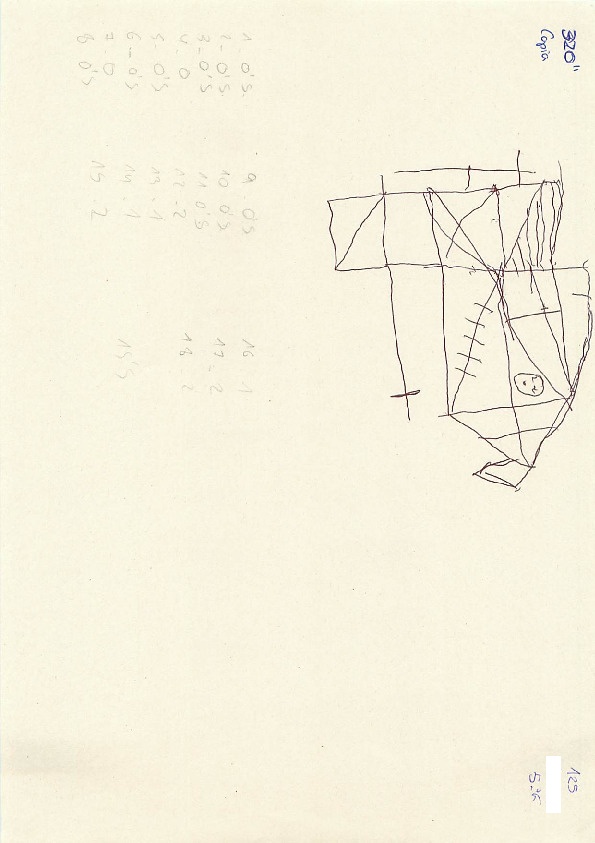 320"
Copia
125
1. 0'5.
2-0'5.
3-0'5
4. 0
5-0'5
6-0'5
7-0
8 0'5
9. 0'5
10 0'5
11 0'5
12-2
13.1
14.1
15.2
16 1
17-2
18 2
15'5